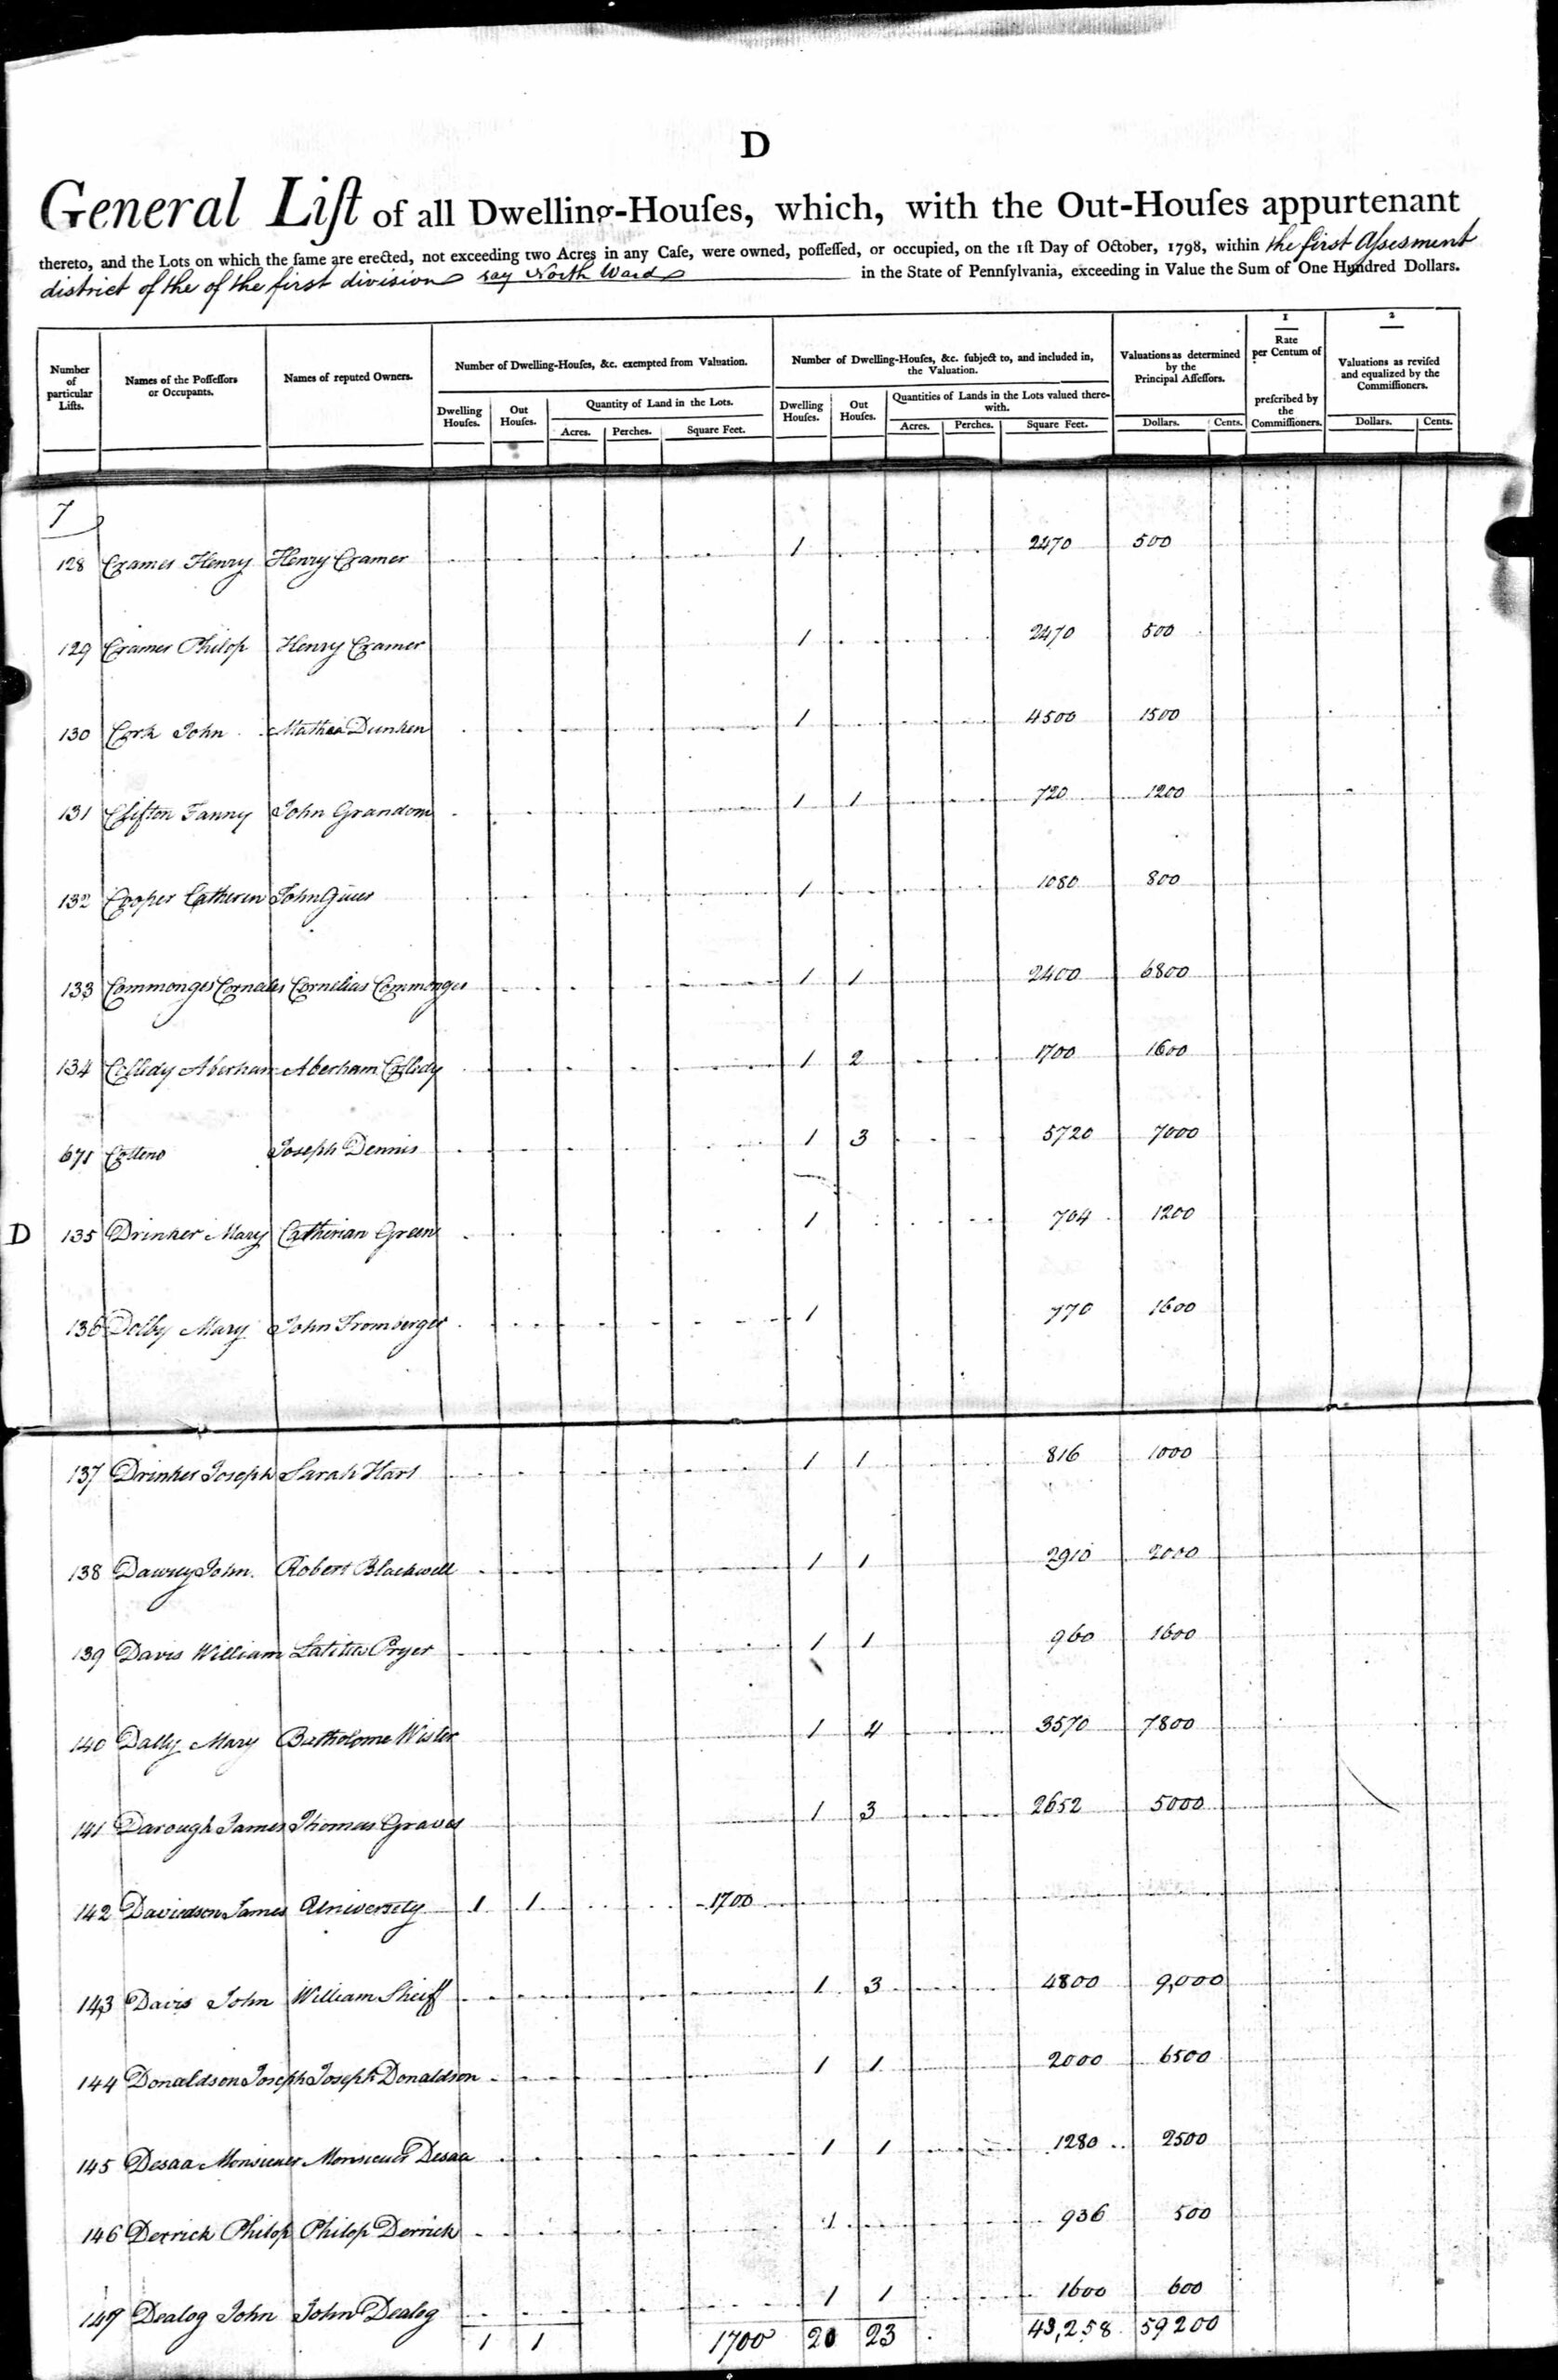 D
General Liſt of all Dwelling-Houſes, which, with the Out-Houſes appurtenant
thereto, and the Lots on which the ſame are erected, not exceeding two Acres in any Caſe, were owned, poſſeſſed, or occupied, on the 1ſt Day of October, 1798, within the first Assesment
district of the of the first division say North Ward in the State of Pennſylvania, exceeding in Value the Sum of One Hundred Dollars.
1 2
Number of particular Liſts. Names of the Poſſeſſors or Occupants. Names of reputed Owners. Number of Dwelling-Houſes, &c. exempted from Valuation. Number of Dwelling-Houſes, &c. ſubject to, and included in, the Valuation. Valuations as determined by the Principal Aſſeſſors. Rate per Centum of preſcribed by the Commiſſioners. Valuations as reviſed and equalized by the Commiſſioners.
Dwelling Houſes. Out Houſes. Quantity of Land in the Lots. Dwelling Houſes. Out Houſes. Quantities of Lands in the Lots valued therewith.
Acres. Perches. Square Feet. Acres. Perches. Square Feet. Dollars. Cents. Dollars. Cents.
7
128 Cramer Henry Henry Cramer 1 2470 500
129 Cramer Philop Henry Cramer 1 2470 500
130 Cork John Dunken 1 4500 1500
131 Clifton Fanny John Grandom 1 1 720 1200
132 Cooper Catheren John 1 1080 800
133 Commonges Cornales Cornelias Commonges 1 1 2400 6800
134 Collidy Aberham Aberham Collidy 1 2 1700 1600
671 Joseph Dennis 1 3 5720 7000
D 135 Drinker Mary Catherian Green 1 704 1200
136 Dolby Mary John Fromberger 1 770 1600
137 Drinker Joseph Sarah Hart 1 1 816 1000
138 John Robert Blackwell 1 1 2910 2000
139 Davis William Latitia Pryer 1 1 960 1600
140 Dally Mary Batholome Wister 1 4 3570 7800
141 Darough James Thomas Graves 1 3 2652 5000
142 Davidson James University 1 1 1700
143 Davis John William Sheiff 1 3 4800 9,000
144 Donaldson Joseph Joseph Donaldson 1 1 2000 6500
145 Desaa Monsieuer Monsieuer Desaa 1 1 1280 2500
146 Derrick Philop Philop Derrick 1 936 500
147 Dealog John John Dealog 1 1 1600 600
1 1 1700 20 23 43,258 59200